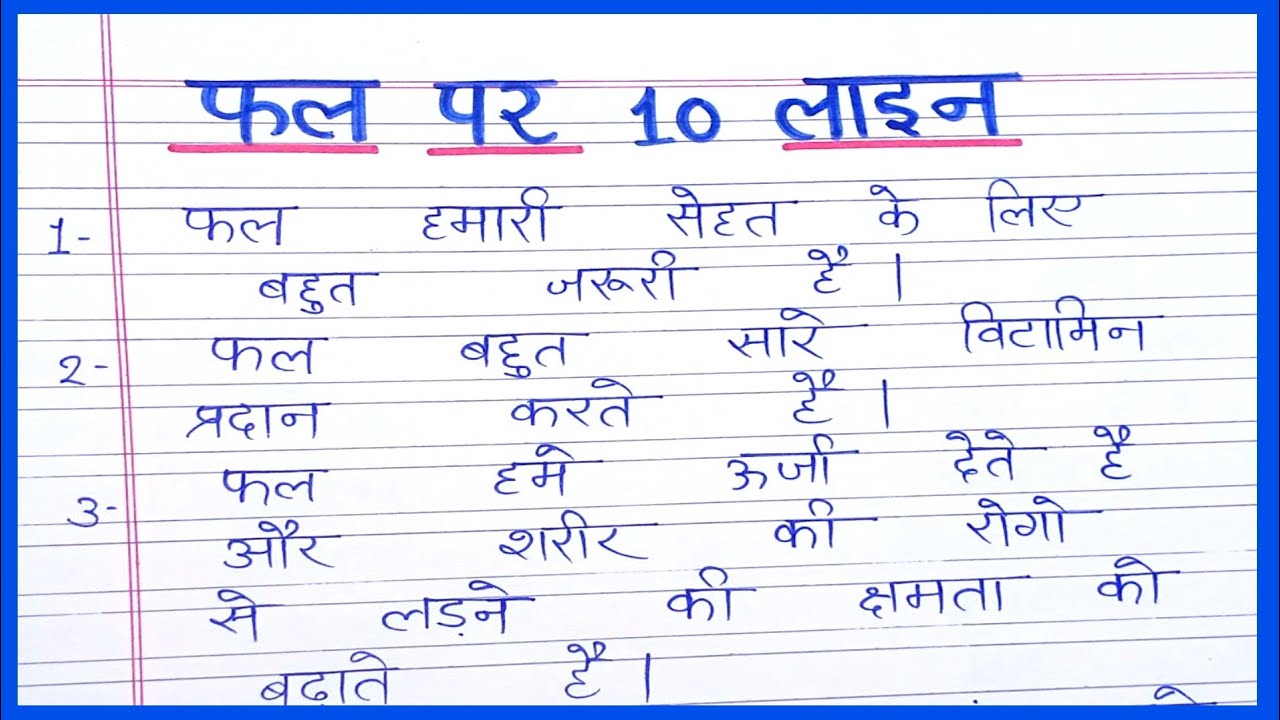 फल पर 10 लाइन
1- फल हमारी सेहत के लिए
बहुत जरूरी है ।
2- फल बहुत सारे विटामिन
प्रदान करते है ।
3- फल हमे ऊर्जा देते है
और शरीर की रोगो
से लड़ने की क्षमता को
बढाते है ।